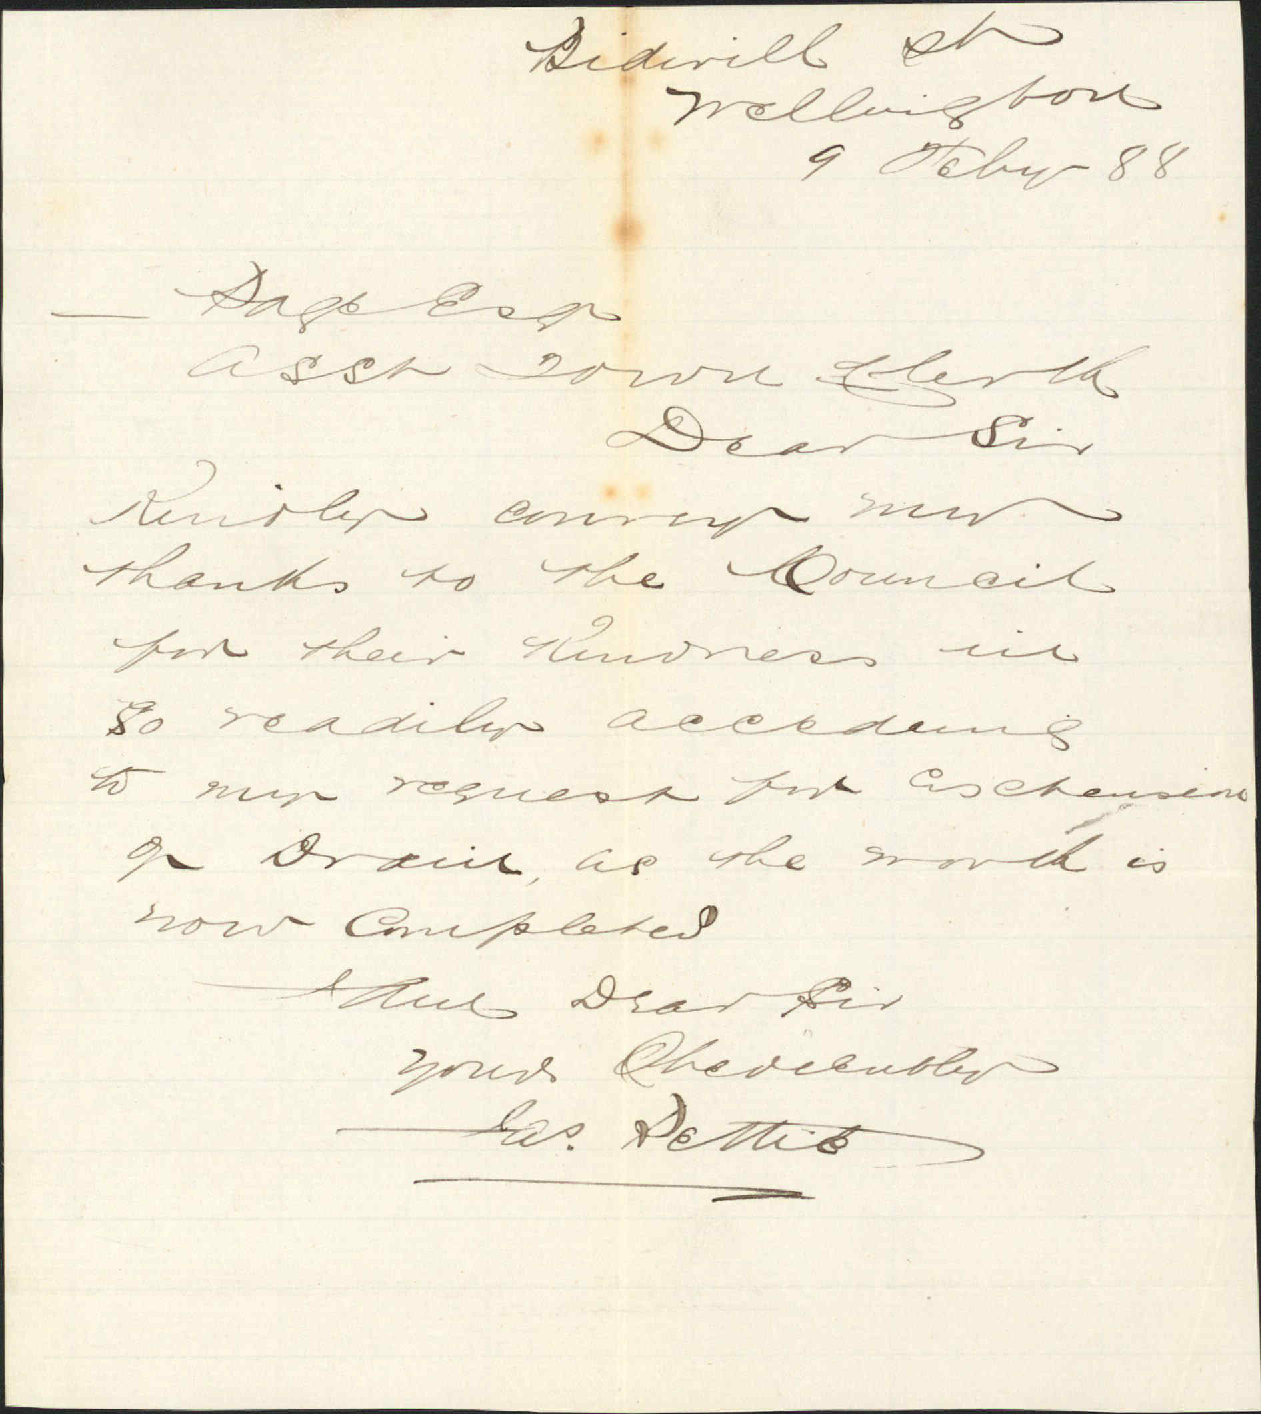 Bidwill St
Wellington
9 Feby 88
— Page Esq
Asst Town Clerk
Dear Sir
Kindly convey my
thanks to the Council
for their Kindness in
so readily acceding
to my request for Extension
of Drain, as the work is
now Completed
I Am Dear Sir
yours Obediently
Jas. Pettie